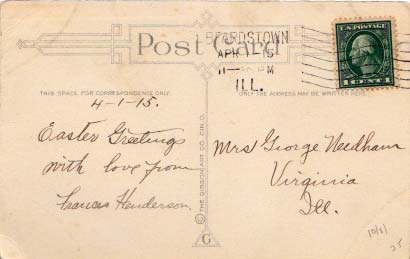 Post Card
BEARDSTOWN
APR 1 5
M
ILL.
U.S. POSTAGE
1 CENT 1
THIS SPACE FOR CORRESPONDENCE ONLY.
ONLY THE ADDRESS MAY BE WRITTEN HERE.
4-1-15.
Easter Greetings
with love from
Francis Henderson.
© THE GIBSON ART CO. CIN. O.
G
Mrs George Needham
Virginia
Ill.
25